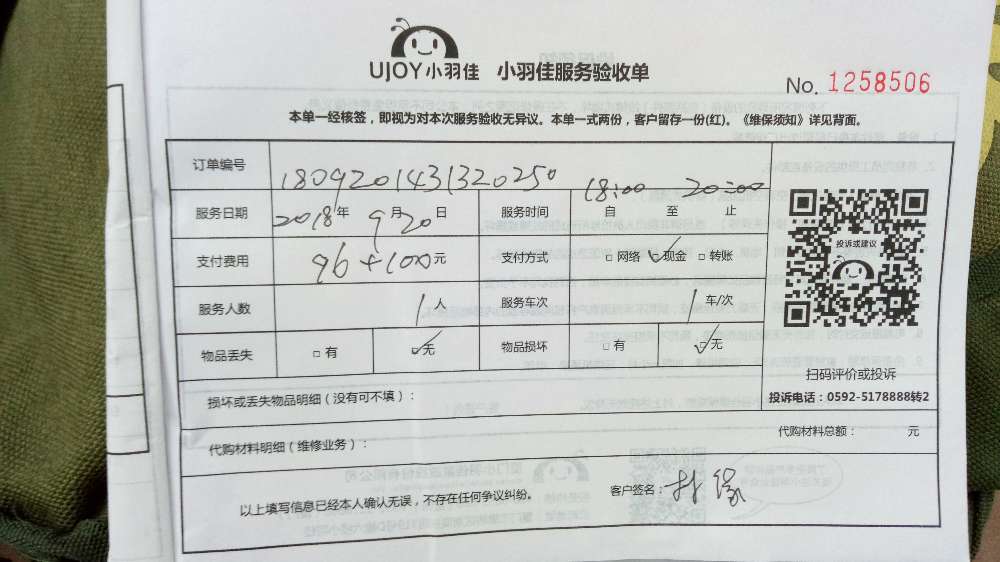 UJOY小羽佳 小羽佳服务验收单
No. 1258506
本单一经核签，即视为对本次服务验收无异议。本单一式两份，客户留存一份(红)。《维保须知》详见背面。
订单编号 1809201431320250
服务日期 2018年 9月20日 服务时间 18:00 20:00 自 至 止
支付费用 96+100元 支付方式 □网络 ☑现金 □转账
服务人数 1人 服务车次 1车/次
物品丢失 □有 ☑无 物品损坏 □有 ☑无
投诉或建议
扫码评价或投诉
投诉电话：0592-5178888转2
损坏或丢失物品明细（没有可不填）：
代购材料明细（维修业务）： 代购材料总额： 元
以上填写信息已经本人确认无误，不存在任何争议纠纷。 客户签名：